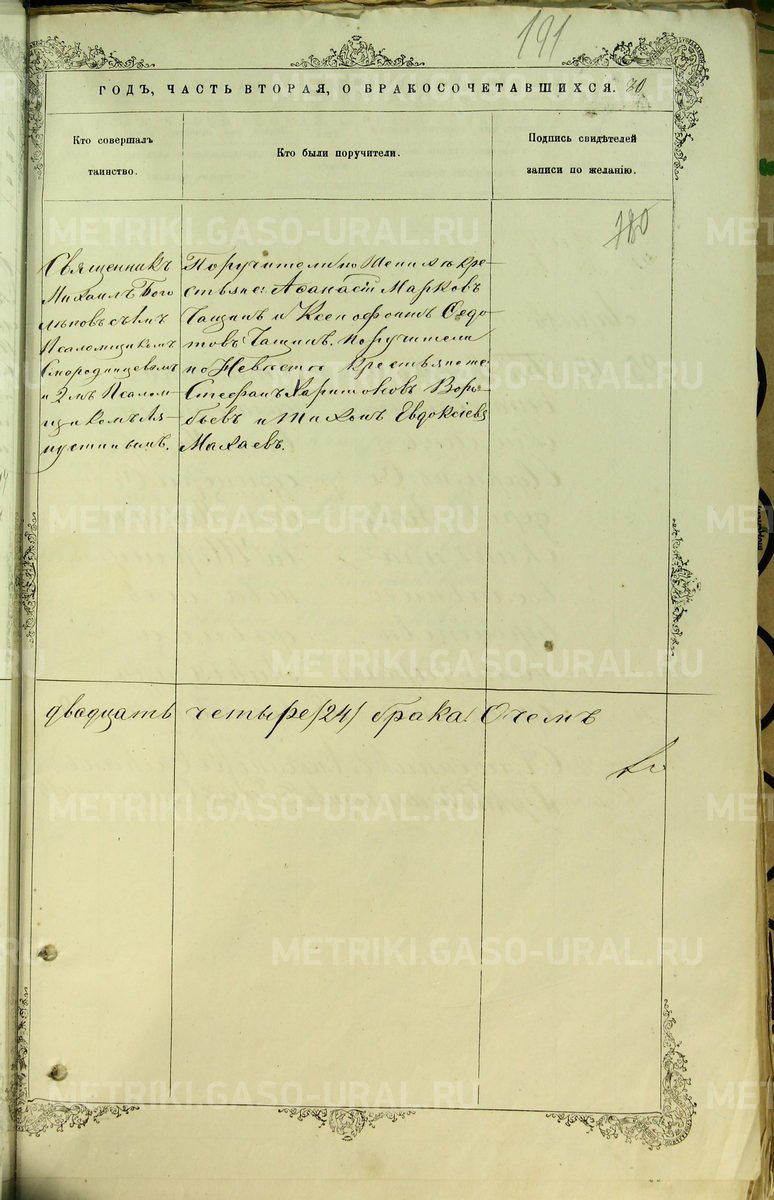 191
ГОДЪ, ЧАСТЬ ВТОРАЯ, О БРАКОСОЧЕТАВШИХСЯ. 80
Кто совершалъ
таинство.
Кто были поручители.
Подпись свидѣтелей
записи по желанію.
780
Священникъ
Михаилъ Бого
лѣповъ съ 1мъ
Псаломщикомъ
Смородинцевымъ
и 2мъ Псалом-
щикомъ Ля-
пустинымъ.
Поручители по Женихѣ кре-
стьяне: Аѳанасій Марковъ
Чащинъ и Ксенофонтъ Ѳедо-
товъ Чащинъ. поручители
по Невѣстѣ крестьяне же
Стефанъ Харитоновъ Воро-
бьевъ и Тихонъ Евдокіевъ
Махаевъ.
двадцать четыре (24) брака. О чемъ
METRIKI.GASO-URAL.RU